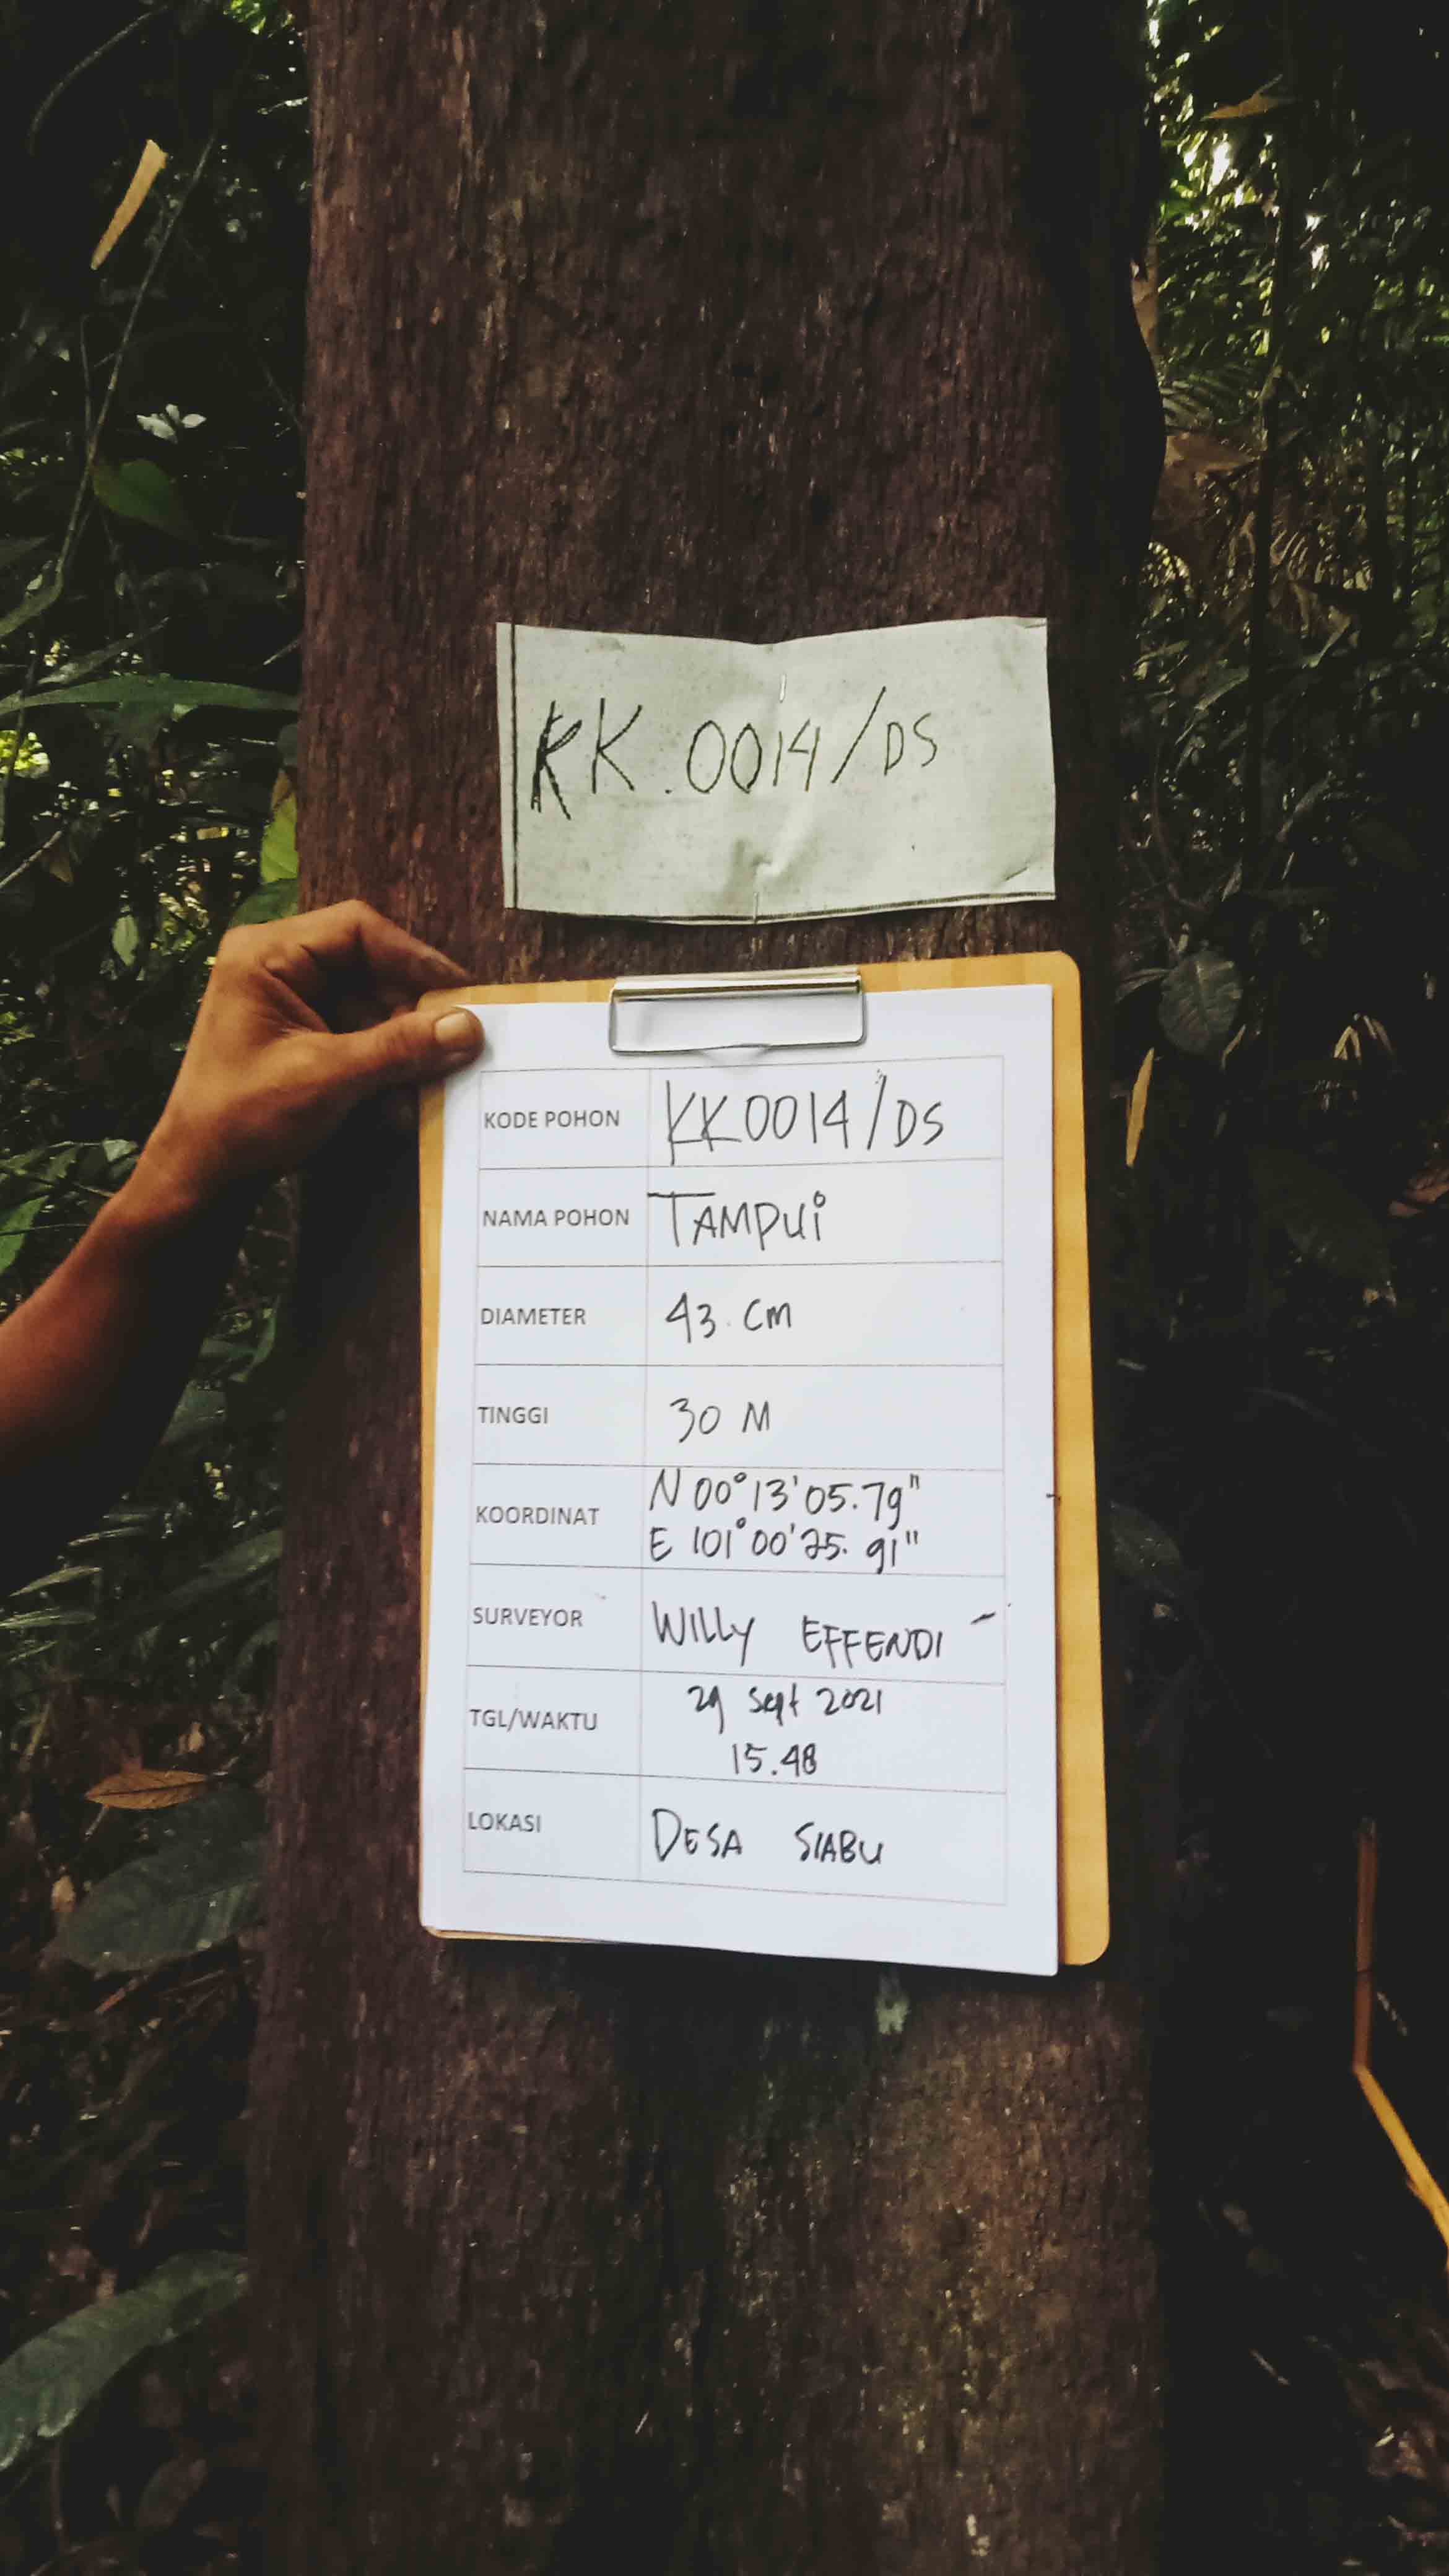 KK.0014/DS
KODE POHON KK0014/DS
NAMA POHON TAMPUI
DIAMETER 43 cm
TINGGI 30 M
KOORDINAT N 00°13'05.79"
E 101°00'25.91"
SURVEYOR WILLY EFFENDI
TGL/WAKTU 29 Sept 2021
15.48
LOKASI DESA SIABU